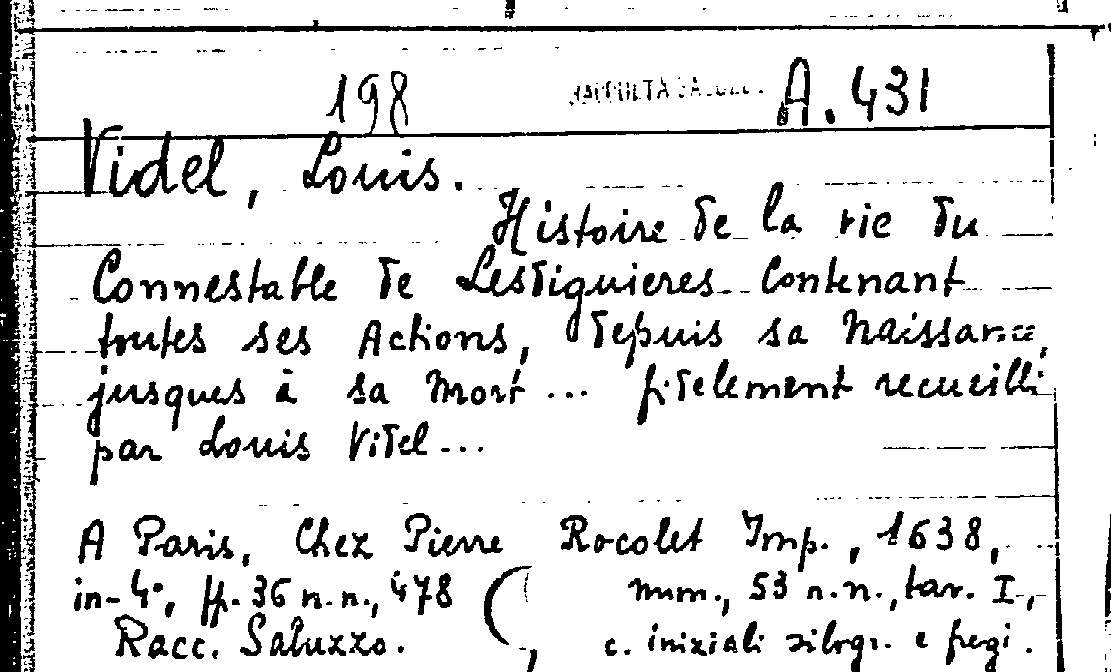 198 RACCOLTA A. 431
Videl, Louis.
Histoire de la vie du
Connestable de Lesdiguieres contenant
toutes ses Actions, depuis sa Naissance,
jusques à sa Mort ... fidelement recueilli
par Louis Videl ...
A Paris, Chez Pierre Rocolet Imp., 1638,
in-4°, ff. 36 n.n., 478 num., 53 n.n., tav. I,
Racc. Saluzzo. c. iniziali silogr. e fregi.